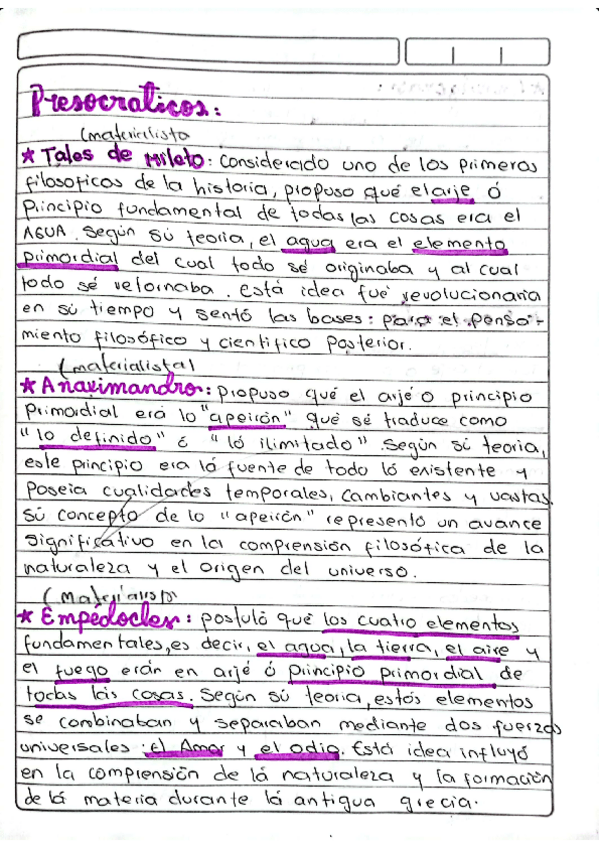 Presocraticos:
(materialista
★ Tales de Mileto: Considerado uno de los primeros
filosoficos de la historia, propuso qué el arje ó
Principio fundamental de todas las cosas era el
AGUA. Según sú teoria, el agua era el elemento
primordial del cual todo sé originaba y al cual
todo sé retornaba. está idea fué revolucionaria
en sú tiempo y sentó las bases: para el pensa-
miento filosófico y cientifico posterior.
(materialista)
★ Anaximandro: Propuso qué el arjé o principio
Primordial erá lo "apeirón" qué sé traduce como
"lo definido" ó "ló ilimitado". Según sú teoria,
este principio era lá fuente de todo ló existente y
Poseia cualidades temporales, cambiantes y vastas.
sú concepto de lo "apeirón" representó un avance
significativo en la comprensión filosófica de la
naturaleza y el origen del universo.
(Materialista
★ Empédocles: postuló qué los cuatro elementos
fundamentales, es decir, el agua, la tierra, el aire y
el fuego erán en arjé ó principio primordial de
todas las cosas. Según sú teoria, estós elementos
se combinaban y separaban mediante dos fuerzas
universales: el Amor y el odio. Está idea influyó
en la comprensión de lá naturaleza y la formación
de lá materia durante lá antigua grecia.